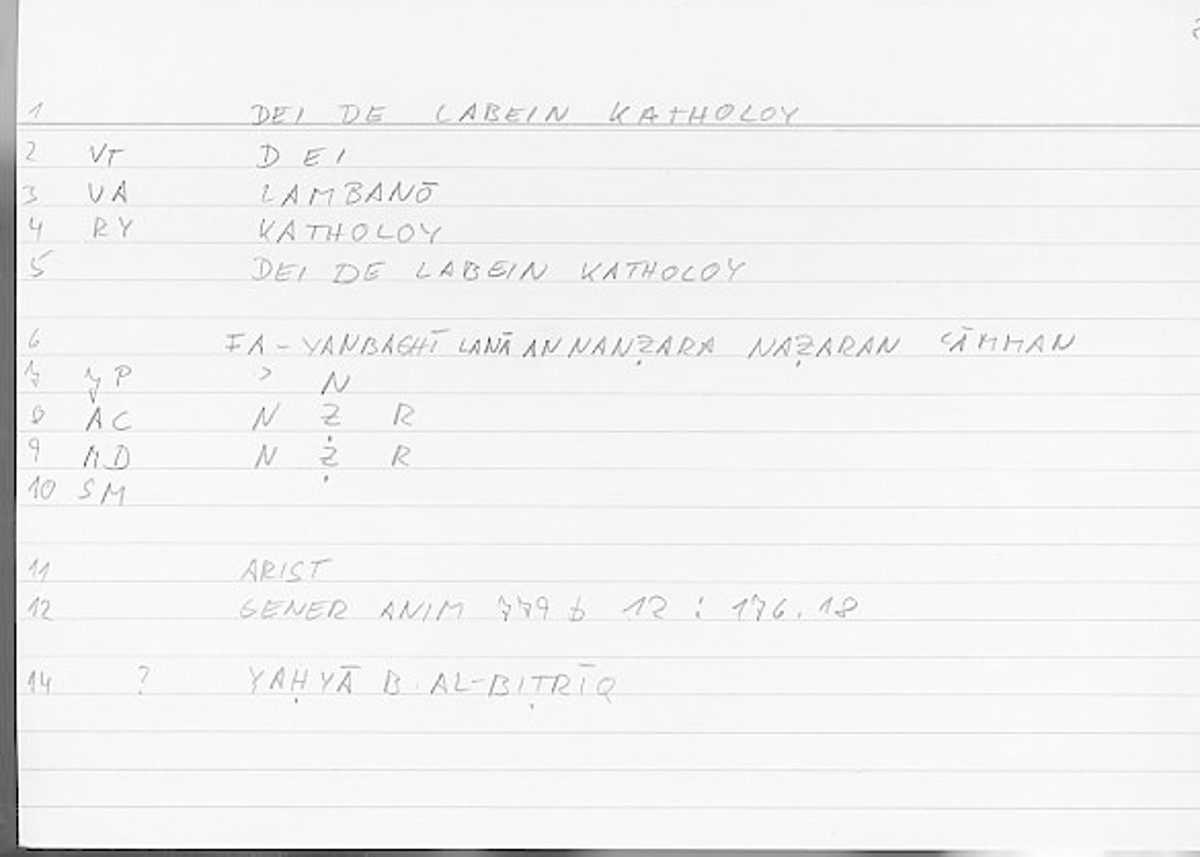 1 DEI DE LABEIN KATHOLOY
2 VT DEI
3 VA LAMBANŌ
4 RY KATHOLOY
5 DEI DE LABEIN KATHOLOY
6 FA-YANBAGHĪ LANĀ AN NANẒARA NAẒARAN ʿĀMMAN
7 JP ʾ N
8 AC N Ẓ R
9 ND N Ẓ R
10 SM
11 ARIST
12 GENER ANIM 779 b 12 : 176.18
14 ? YAḤYĀ B. AL-BIṬRĪQ